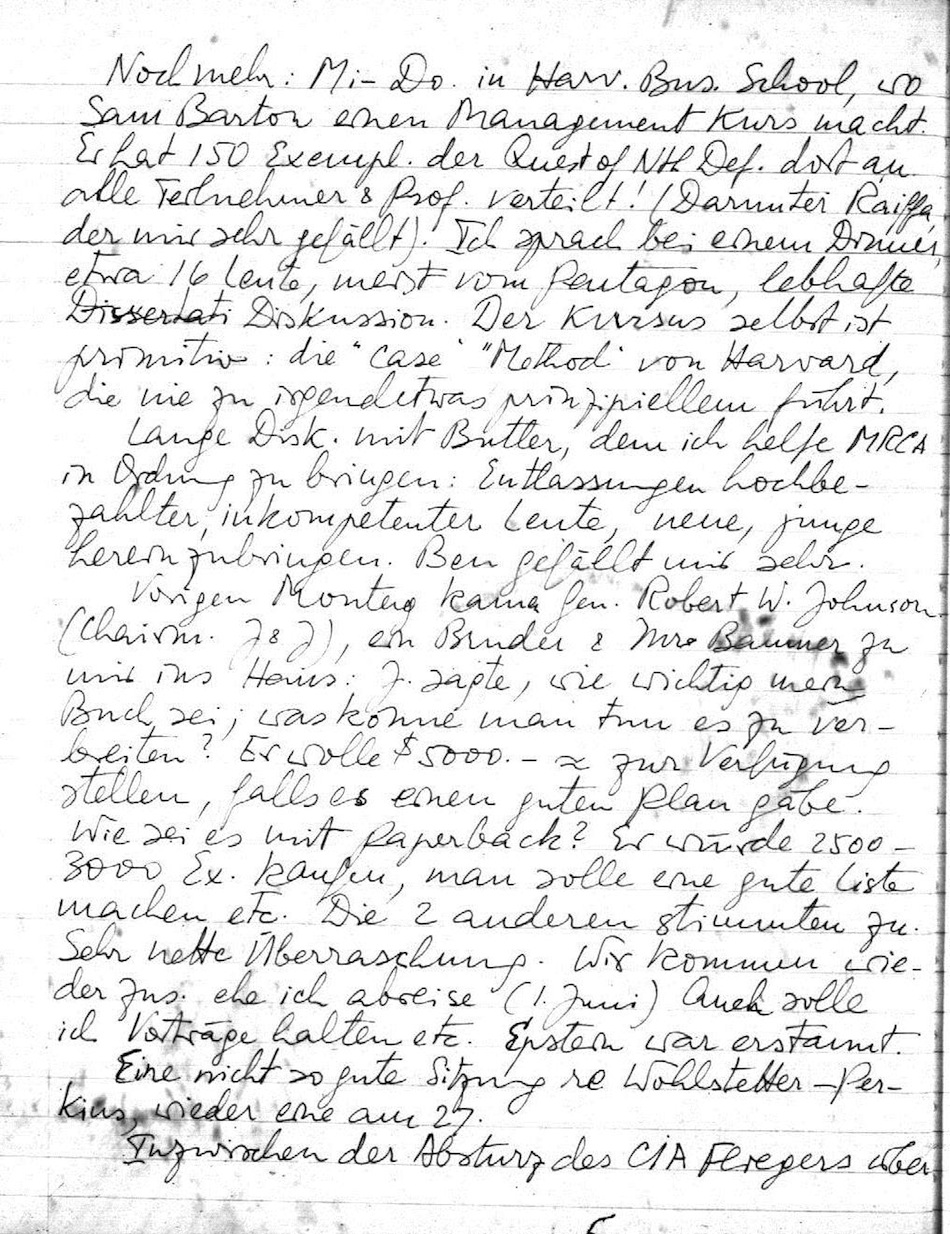 Noch mehr: Mi-Do. in Harv. Bus. School, wo
Sam Barton einen Management Kurs macht.
Er hat 150 Exempl. der Quest of Ntl Def. dort an
alle Teilnehmer & Prof. verteilt! (Darunter Raiffa,
der mir sehr gefällt). Ich sprach bei einem Dinner,
etwa 16 Leute, meist vom Pentagon, lebhafte
Dissertati Diskussion. Der Kursus selbst ist
primitiv: die "case" "Method" von Harvard,
die nie zu irgendetwas prinzipiellem führt.
Lange Disk. mit Butler, dem ich helfe MRCA
in Ordnung zu bringen: Entlassungen hochbe-
zahlter, inkompetenter Leute, neue, junge
hereinzubringen. Ben gefällt mir sehr.
Vorigen Montag kam Gen. Robert W. Johnson
(Chairm. J&J), ein Bruder & Mr. zu
mir ins Haus: J. sagte, wie wichtig mein
Buch sei; was könne man tun es zu ver-
breiten? Er wolle $5000.- zur Verfügung
stellen, falls es einen guten Plan gäbe.
Wie sei es mit Paperback? Er würde 2500-
3000 Ex. kaufen, man solle eine gute Liste
machen etc. Die 2 anderen stimmten zu.
Sehr nette Überraschung. Wir kommen wie-
der zus. ehe ich abreise (1. Juni) Auch solle
ich Vorträge halten etc. Epstein war erstaunt.
Eine nicht so gute Sitzung re Wohlstetter-Per-
kins, wieder eine am 27.
Inzwischen der Absturz des CIA Fliegers über